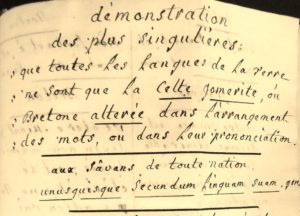 démonstration
des plus singulières:
que toutes les langues de la terre
ne sont que la Celte gomerite, ou
Bretone alterée dans l'arrangement
des mots, où dans leur prononciation.
aux sâvans, de toute nation.
unusquisque secundum linguam suam, gen